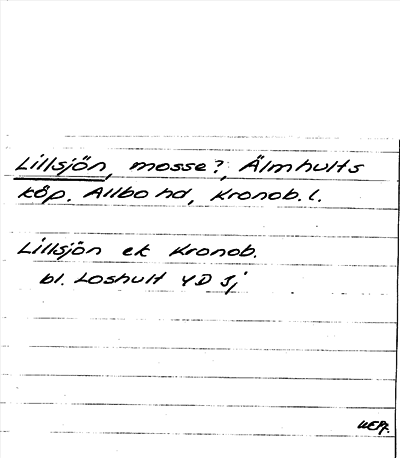 Lillsjön, mosse?, Älmhults
köp. Allbo hd, Kronob. l.
Lillsjön ek Kronob.
bl. Loshult 4D 3j